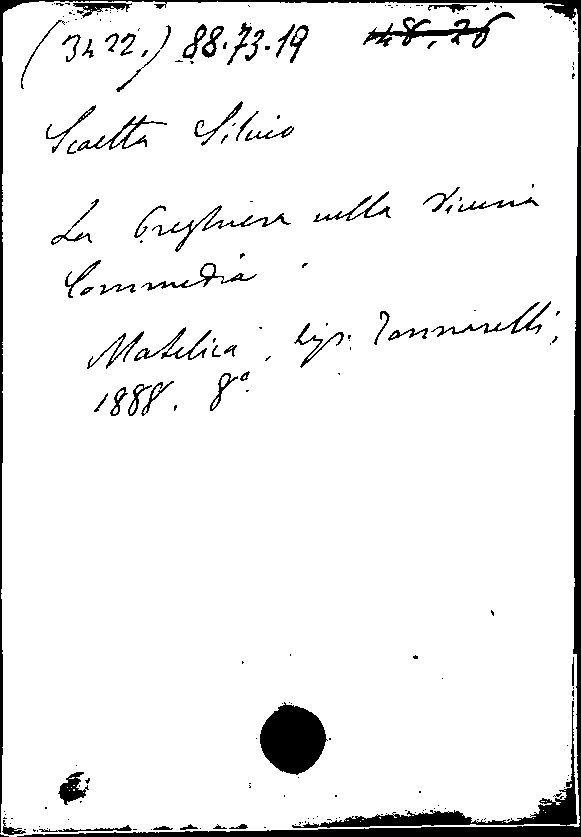 (3422.) 88.73-19 148.26
Scaetta Silvio
La Preghiera nella Divina
Commedia.
Matelica, tip. Tonnarelli,
1888. 8º